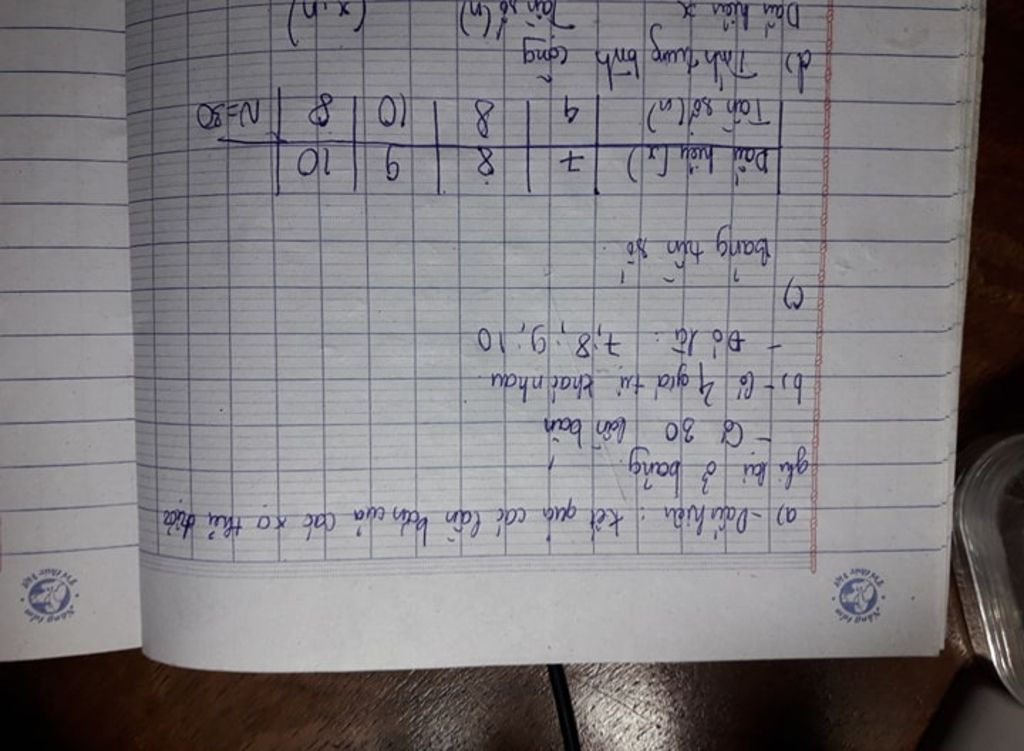 a) - Dấu hiệu: kết quả các lần bắn của các xạ thủ được
ghi lại ở bảng
- Có 30 lần bắn
b) - Có 4 giá trị khác nhau
- Đó là: 7; 8; 9; 10
c)
bảng tần số
Dấu hiệu (x) 7 8 9 10
Tần số (n) 4 8 10 8 N=30
d) Tính trung bình cộng
Dấu hiệu x Tần số (n) (x.n)